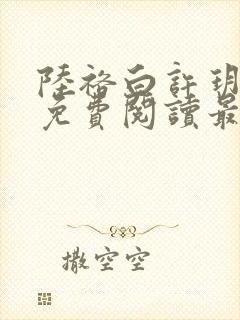 陸裕白許玥
免費閱讀最
撒空空